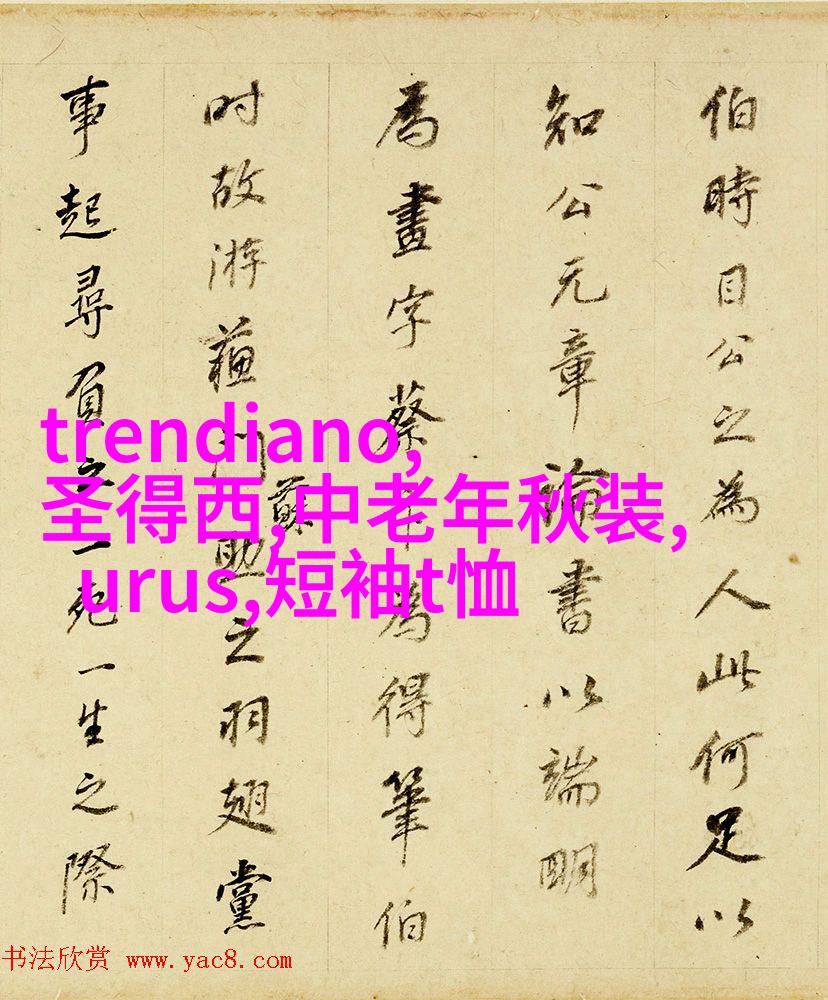 伯時目公之為人此何足以
知公元章論書以端明
為畫字蔡卞為得筆伯
时故游蘓门助之羽翅黨
蘇
事起尋負之一死一生之際
trendiano,
圣得西,中老年秋装,
urus,短袖t恤
书法欣赏 www.yac8.com